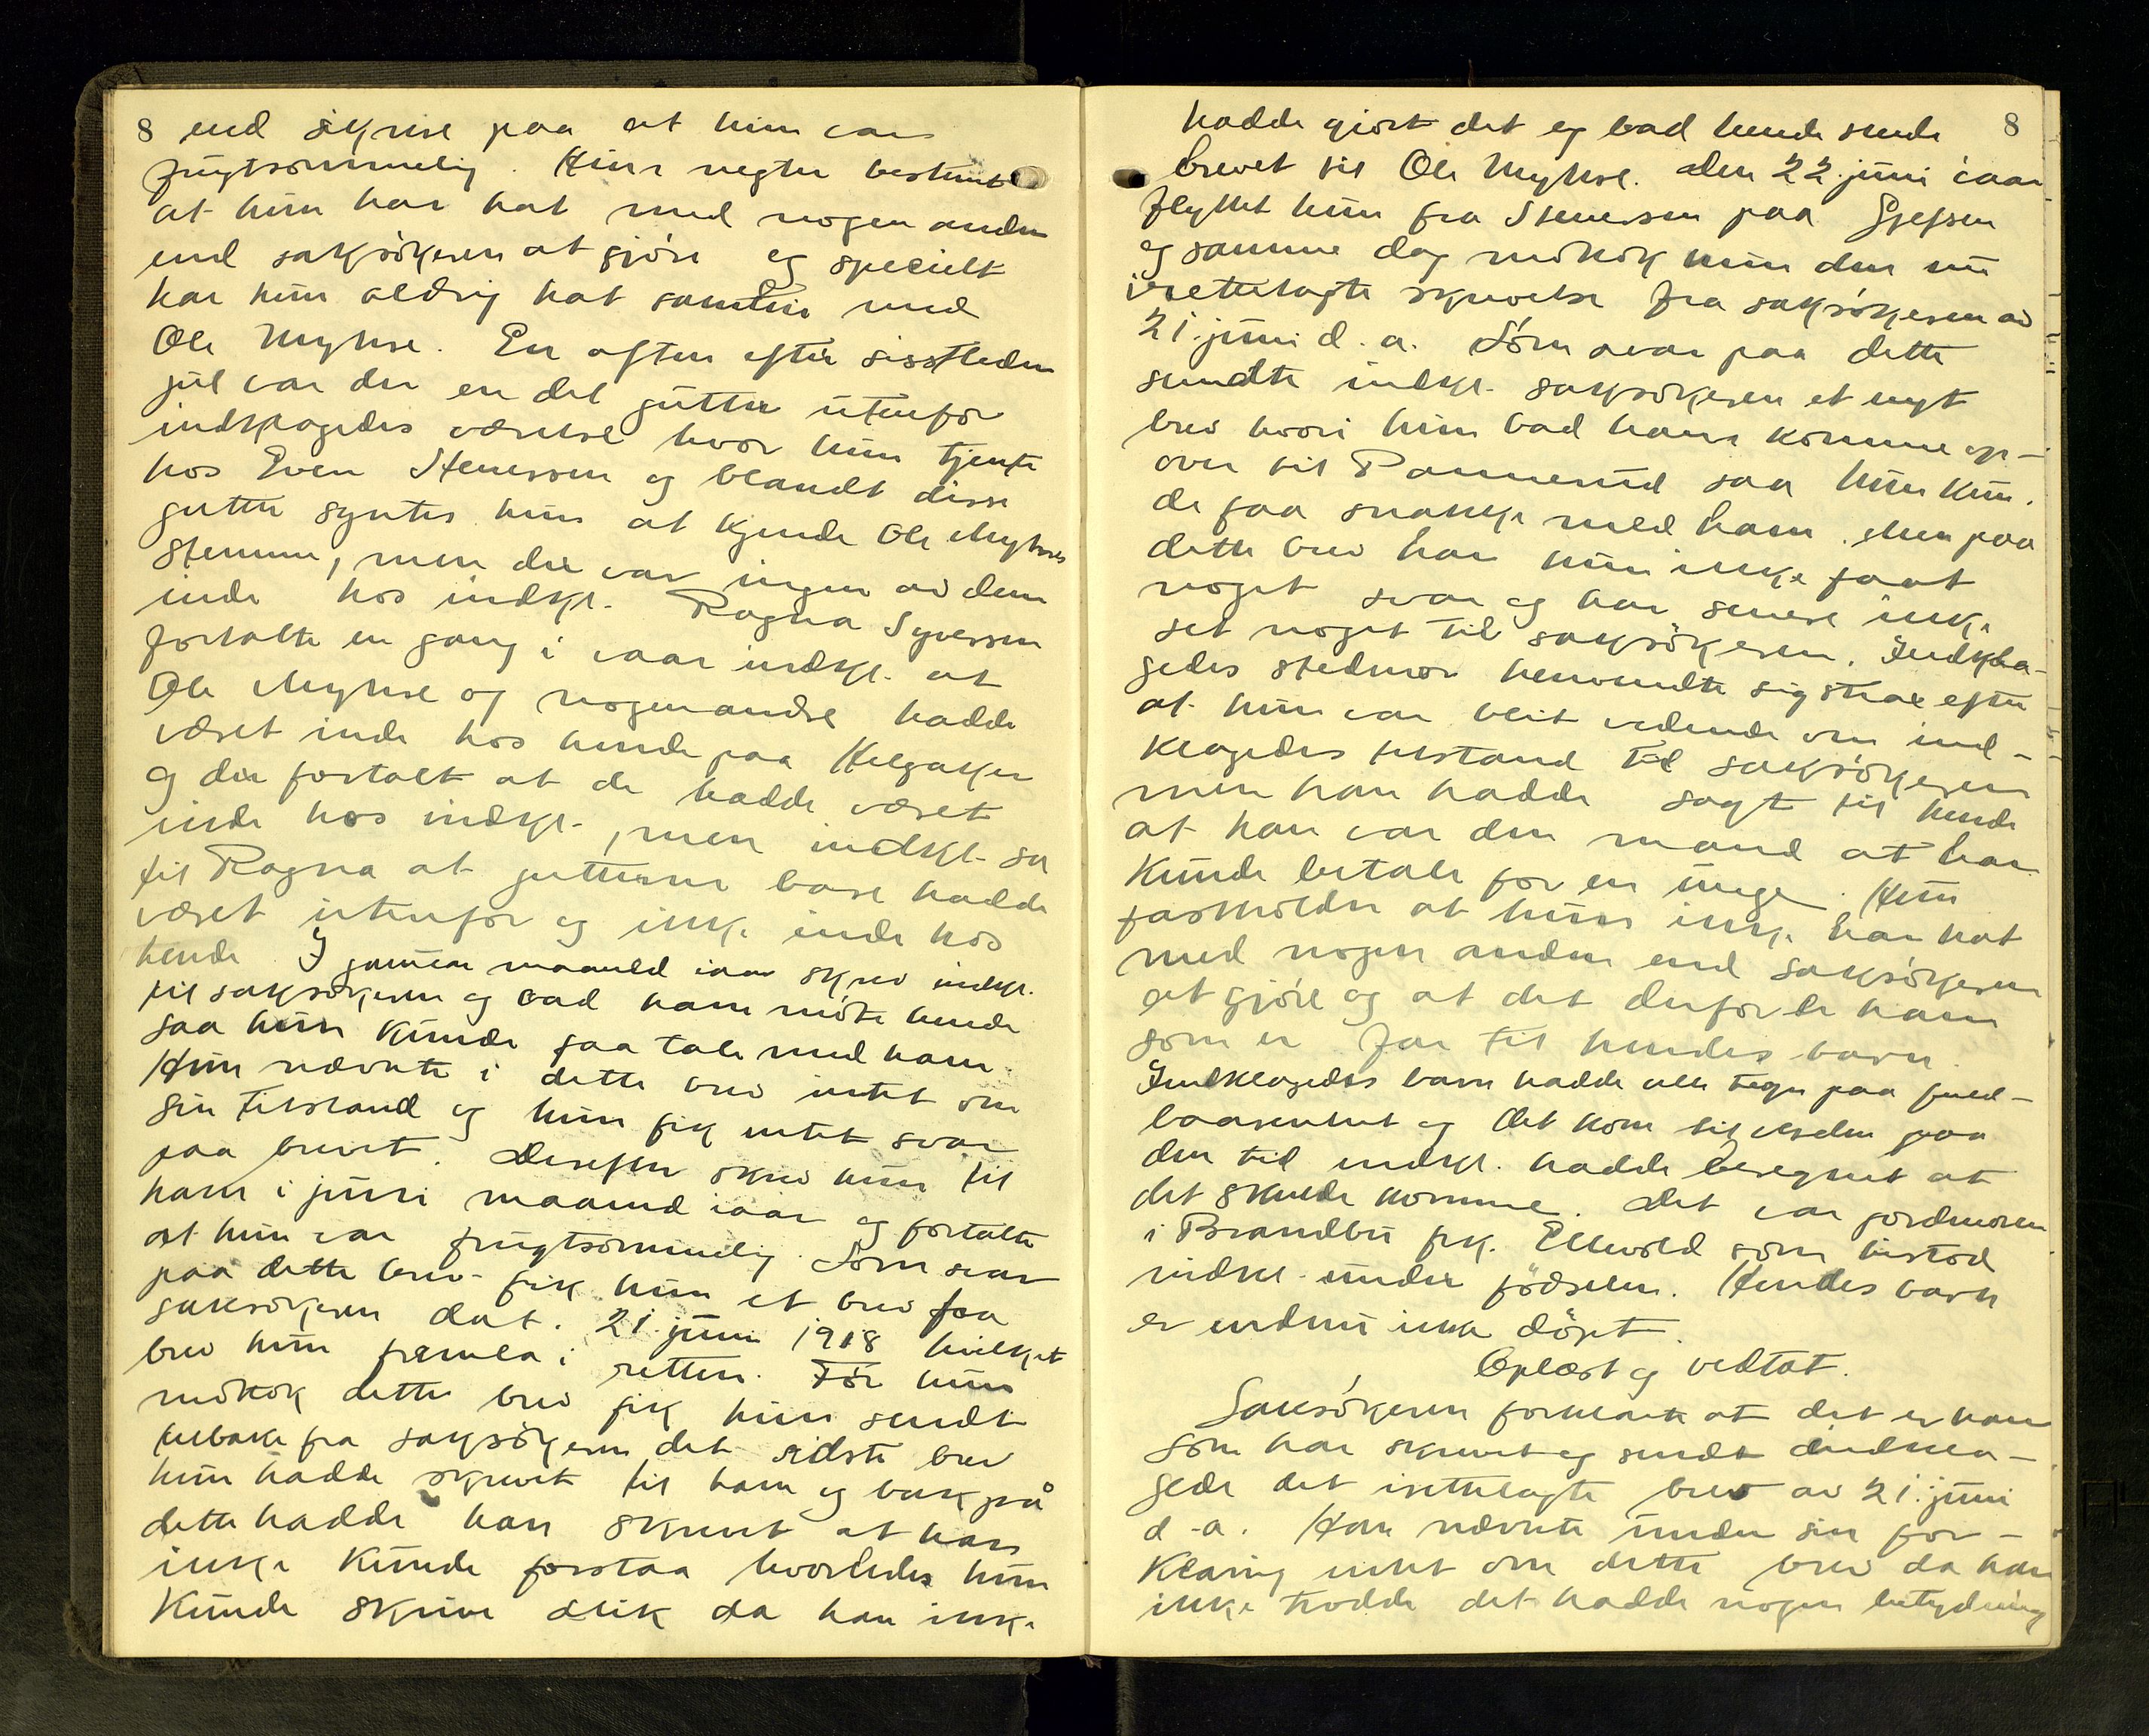 8 end sikrere paa at hun var
frugtsommelig. Hun negter bestemt
at hun har hat med nogen anden
end saksökeren at gjöre og specielt
har hun aldrig hat samleie med
Ole Myhre. En aften efter sisstleden
jul var der en del gutter utenfor
indklagedes værelse hvor hun tjente
hos Even Stenersen og blandt disse
gutter syntes hun at kjende Ole Myhres
stemme, men der var ingen av dem
inde hos indkl. Ragna Syversen
fortalte en gang i vaar indkl. at
Ole Myhre og nogen andre hadde
været inde hos hende paa Helgaker
og der fortalt at de hadde været
inde hos indkl., men indkl. sa
til Ragna at gutterne bare hadde
været utenfor og ikke inde hos
hende. I januar maaned iaar skrev indkl.
til saksökeren og bad ham möte hende
saa hun kunde faa tale med ham.
Hun nævnte i dette brev intet om
sin tilstand og hun fik intet svar
paa brevet. Derefter skrev hun til
ham i juni maaned iaar og fortalte
at hun var frugtsommelig. Som svar
paa dette brev fik hun et brev fra
saksökeren dat. 21. juni 1918 hvilket
brev hun fremla i retten. Før hun
mottok dette brev fik hun sendt
tilbake fra saksökeren det sidste brev
hun hadde skrevet til ham og bak på
dette hadde han skrevet at han
ikke kunde forstaa hvorledes hun
kunde skrive slik da han ikke
hadde gjort det og bad hende sende 8
brevet til Ole Myhre. Den 22. juni iaar
flyttet hun fra Stenersen paa Gjefsen
og samme dag mottok hun den nu
iretterlagte skrivelse fra saksökeren av
21. juni d.a. Som svar paa dette
sendte indkl. saksökeren et nyt
brev hvori hun bad ham komme op-
over til Pannerud saa hun kun-
de faa snakke med ham. Men paa
dette brev har hun ikke faat
noget svar og har senere ikke
set noget til saksökeren. Indkla-
gedes stedmor henvendte sig strax efter
at hun var blit vidende om ind-
klagedes tilstand til saksökeren
men han hadde sagt til hende
at han var den mand at han
kunde betale for en unge. Hun
fastholder at hun ikke har hat
med nogen anden end saksökeren
at gjöre og at det derfor er ham
som er far til hendes barn.
Indklagedes barn hadde alle tegn paa fuld-
baarenhet og det kom til verden paa
den tid indkl. hadde beregnet at
det skulde komme. Det var jordmoren
i Brandbu frk. Ellevold som bistod
indkl. under födselen. Hendes barn
er endnu ikke döpt.
Oplæst og vedtat.
Saksökeren forklarte at det er ham
som har skrevet og sendt indkla-
gede det iretterlagte brev av 21. juni
d.a. Han nævnte under sin for-
klaring intet om dette brev da han
ikke trodde det hadde nogen betydning